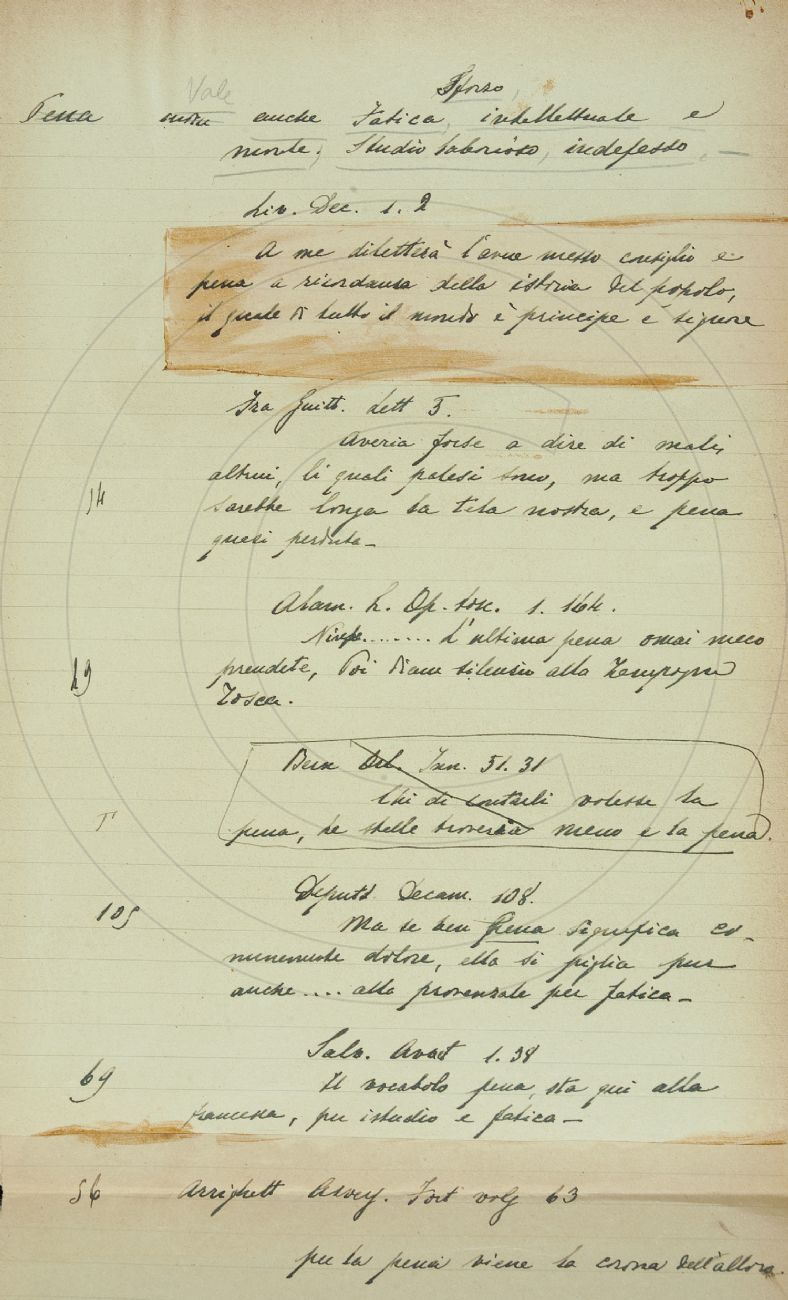 Vale
Sforzo,
Pena anche Fatica, intellettuale e
morale; Studio laborioso, indefesso. —
Liv. Dec. 1. 2
A me diletterà l'aver messo consiglio e
pena a ricordanza della istoria del popolo,
il quale di tutto il mondo è principe e signore
Fra Guitt. Lett 5.
Averia forse a dire di mali
altrui, li quali palesi sono, ma troppo
14 sarebbe longa la tela nostra, e pena
quasi perduta —
Alam. L. Op. tos. 1. 164.
Ninfe........ L'ultima pena omai meco
29 prendete, Poi diam silenzio alla Zampogna
Tosca.
Bern Orl. Inn. 51. 31
Chi di contarli volesse la
pena, le stelle meno è la pena.
Deput Decam. 108.
105 Ma se ben Pena significa co-
munemente dolore, ella si piglia pur
anche.... alla provenzale per fatica —
Salv. Avvert 1. 38
69 Il vocabolo pena, sta qui alla
francesca, per istudio e fatica —
56 Arrighett Avvers. Fort volg 63
per la pena viene la corona dell'alloro.